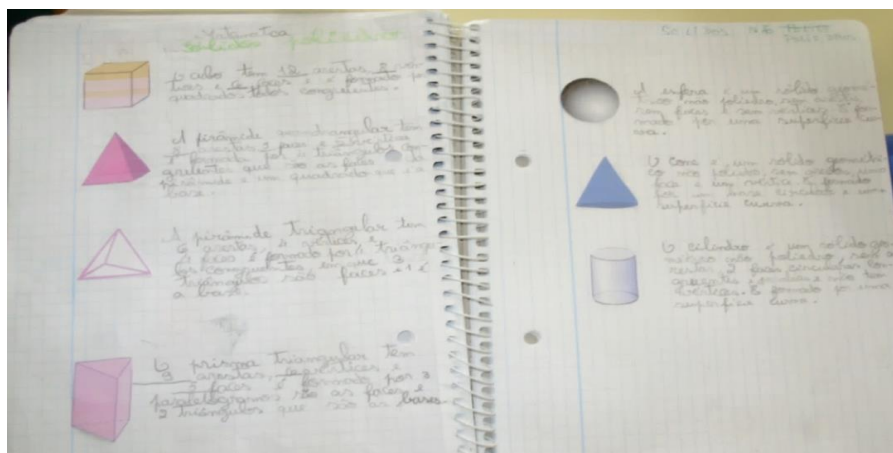 Matemática
Sólidos poliedros
O cubo tem 12 arestas 8 vér-
tices e 6 faces e é formado por
quadrados todos congruentes.
A pirâmide quadrangular tem
8 arestas 5 faces e 5 vértices
é formada por 4 triângulos con-
gruentes que são as faces da
pirâmide e um quadrado que é a
base.
A pirâmide triangular tem
6 arestas, 4 vértices e
4 faces é formado por 4 triângu-
los congruentes em que 3
triângulos são faces e 1 é
a base.
O prisma triangular tem
9 arestas, 6 vértices e
5 faces é formado por 3
paralelogramos são as faces e
2 triângulos que são as bases.
Não
A esfera é um sólido geomé-
trico não poliedro, sem arestas,
sem faces e sem vértices. É for-
mado por uma superfície cur-
va.
O cone é um sólido geométri-
co não poliedro, sem arestas, uma
face e um vértice. É formado
por um base circular e uma
superfície curva.
O cilindro é um sólido geo-
métrico não poliedro, sem a-
restas, 2 faces circulares con-
gruentes e não tem
vértices. É formado por uma
superfície curva.